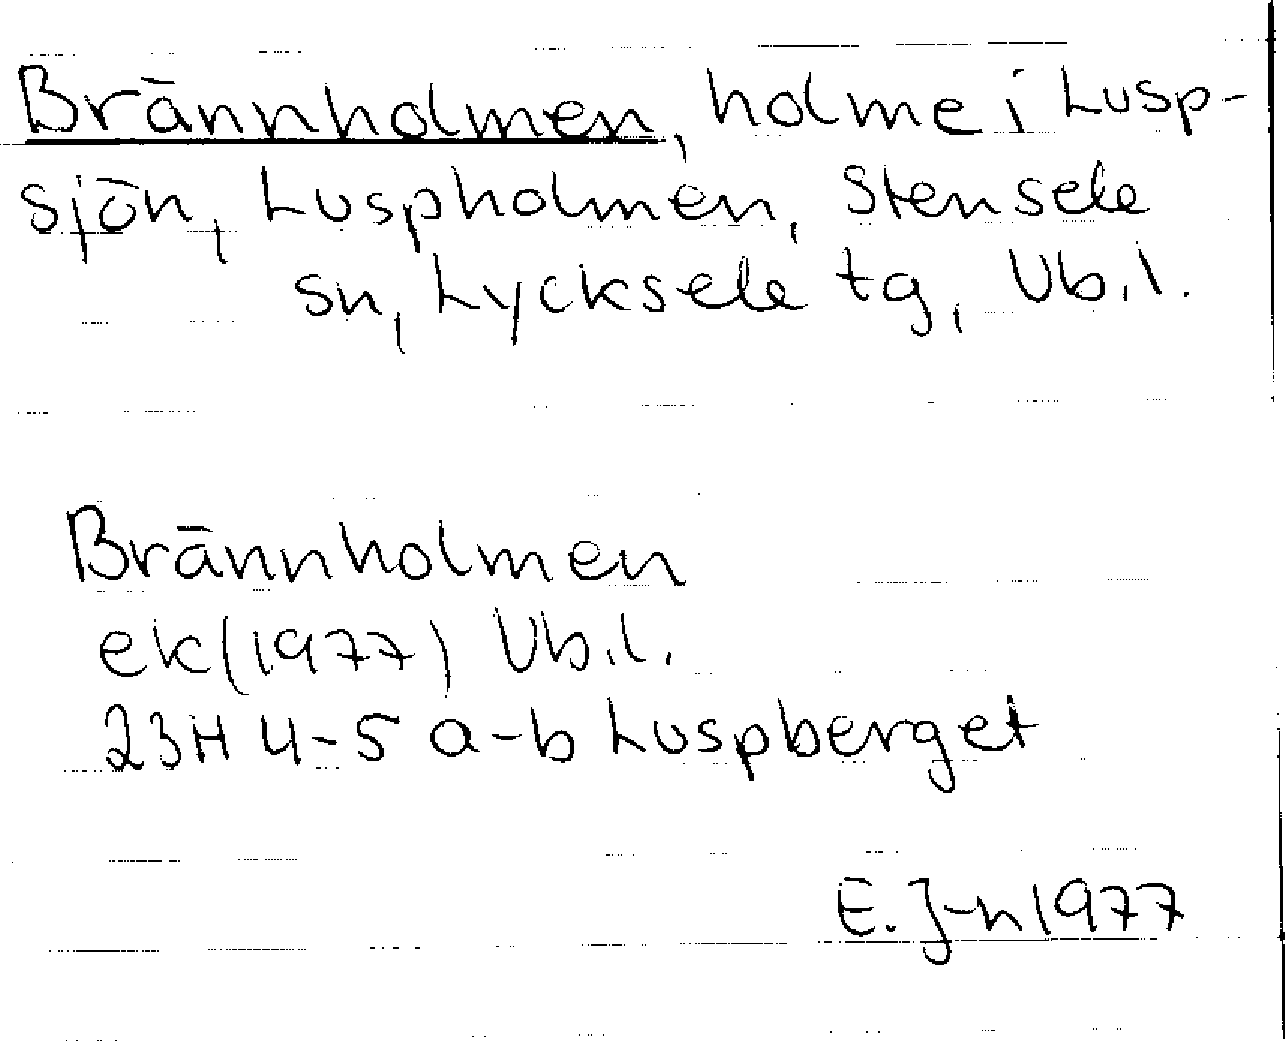 Brännholmen, holme i Lusp-
sjön, Luspholmen, Stensele
sn, Lycksele tg, Vb.l.
Brännholmen
ek (1977) Vb.l.
23H 4-5 a-b Luspberget
E. J-n 1977